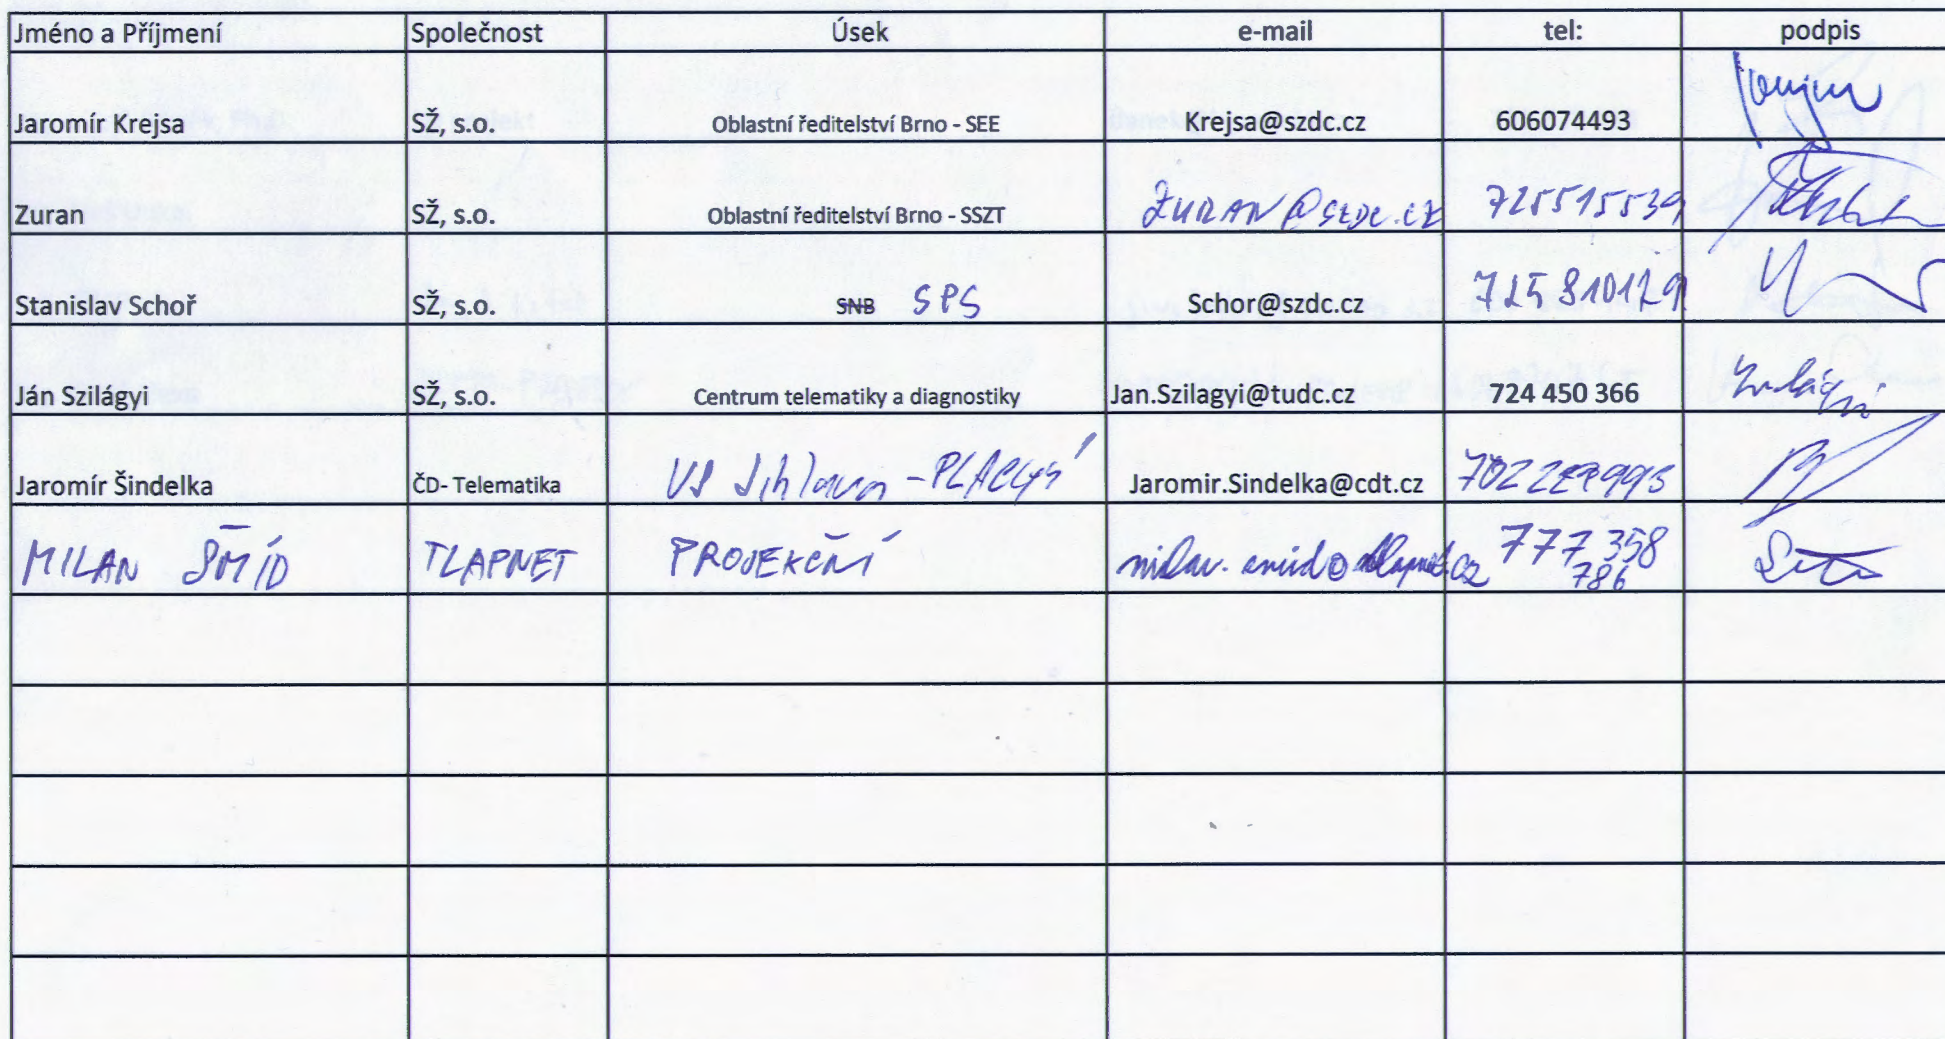 Jméno a Příjmení Společnost Úsek e-mail tel: podpis
Jaromír Krejsa SŽ, s.o. Oblastní ředitelství Brno - SEE Krejsa@szdc.cz 606074493
Zuran SŽ, s.o. Oblastní ředitelství Brno - SSZT ZURAN@SZDC.CZ 725515539
Stanislav Schoř SŽ, s.o. SNB SPS Schor@szdc.cz 725 810129
Ján Szilágyi SŽ, s.o. Centrum telematiky a diagnostiky Jan.Szilagyi@tudc.cz 724 450 366 Szilágyi
Jaromír Šindelka ČD- Telematika Jihlava - Jaromir.Sindelka@cdt.cz
MILAN ŠMÍD TLAPNET PROJEKČNÍ milan.smid@tlapnet.cz 777 358
786